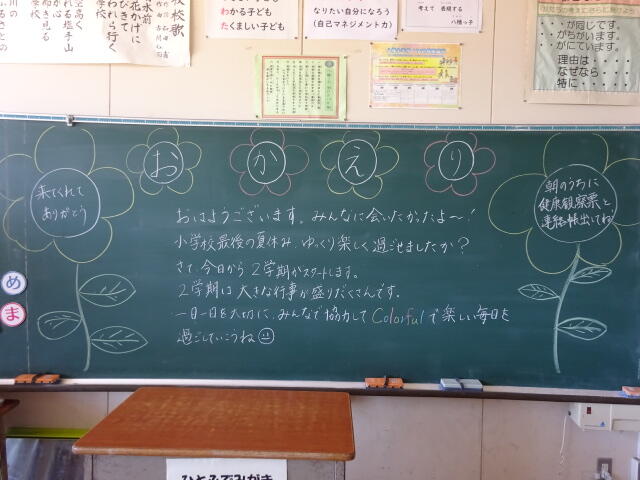 校校歌
たくましい子ども
わかる子ども
なりたい自分になろう
(自己マネジメント力)
考えて 表現する
・・が同じです。
・・がちがいます。
・・がにています。
理由は・・・
なぜなら・・・
特に・・・・・
おかえり
来てくれて
ありがとう
朝のうちに
健康観察票と
連絡帳出してね
おはようございます。みんなに会いたかったよ〜!
小学校最後の夏休み、ゆっくり楽しく過ごせましたか?
さて、今日から2学期がスタートします。
2学期は大きな行事が盛りだくさんです。
一日一日を大切に、みんなで協力してColorfulで楽しい毎日を
過ごしていこうね
め
ま
ひとみでみがき